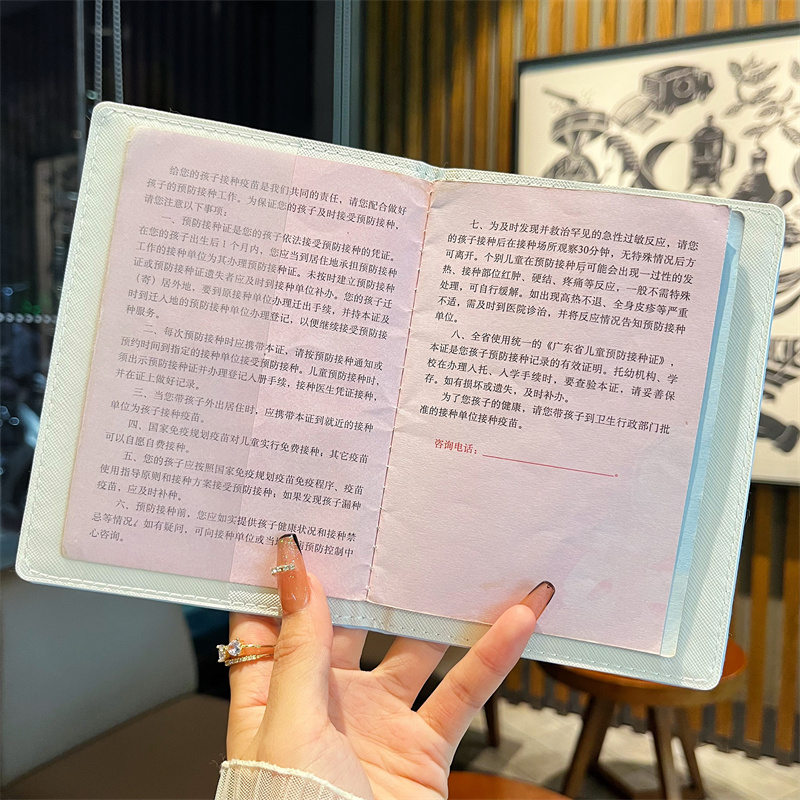 给您的孩子接种疫苗是我们共同的责任，请您配合做好
孩子的预防接种工作。为保证您的孩子及时接受预防接种，
请您注意以下事项：
一、预防接种证是您的孩子依法接受预防接种的凭证。
在您的孩子出生后1个月内，您应当到居住地承担预防接种
工作的接种单位为其办理预防接种证。未按时建立预防接种
证或预防接种证遗失者应及时到接种单位补办。您的孩子迁
（寄）居外地，要到原接种单位办理迁出手续，并持本证及
时到迁入地的预防接种单位办理登记，以便继续接受预防接
种服务。
二、每次预防接种时应携带本证，请按预防接种通知或
预约时间到指定的接种单位接受预防接种。儿童预防接种时，
须出示预防接种证并办理登记入册手续，接种医生凭证接种，
并在证上做好记录。
三、当您带孩子外出居住时，应携带本证到就近的接种
单位为孩子接种疫苗。
四、国家免疫规划疫苗对儿童实行免费接种；其它疫苗
可以自愿自费接种。
五、您的孩子应按照国家免疫规划疫苗免疫程序、疫苗
使用指导原则和接种方案接受预防接种；如果发现孩子漏种
疫苗，应及时补种。
六、预防接种前，您应如实提供孩子健康状况和接种禁
忌等情况。如有疑问，可向接种单位或当地 预防控制中
心咨询。
七、为及时发现并救治罕见的急性过敏反应，请您
的孩子接种后在接种场所观察30分钟，无特殊情况后方
可离开。个别儿童在预防接种后可能会出现一过性的发
热、接种部位红肿、硬结、疼痛等反应，一般不需特殊
处理，可自行缓解。如出现高热不退、全身皮疹等严重
不适，需及时到医院诊治，并将反应情况告知预防接种
单位。
八、全省使用统一的《广东省儿童预防接种证》，
本证是您孩子预防接种记录的有效证明。托幼机构、学
校在办理入托、入学手续时，要查验本证，请妥善保
存。如有损坏或遗失，及时补办。
为了您孩子的健康，请您带孩子到卫生行政部门批
准的接种单位接种疫苗。
咨询电话：